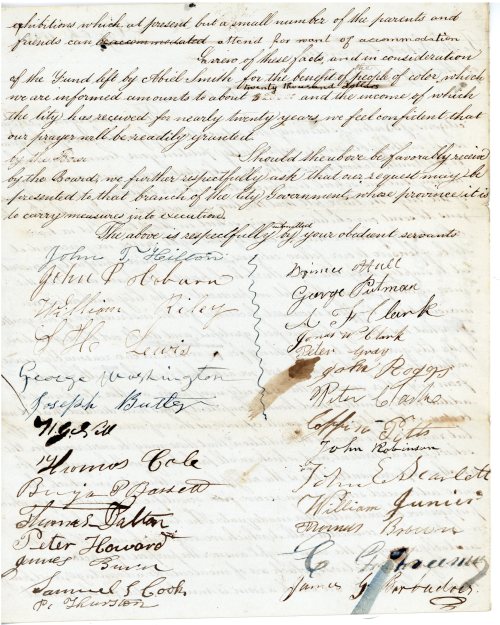 exhibitions which at present but a small number of the parents and
friends can be accommodated attend for want of accommodation
In view of these facts, and in consideration
of the Fund left by Abiel Smith for the benefit of the people of color, which
twenty thousand dollars
we are informed amounts to about and the income of which
the City has received for nearly twenty years, we feel confident that
our prayer will be readily granted.
by the Boar Should the above be favorably received
by the Board, we further respectfully ask that our request may be
presented to that branch of the City Government, whose province it is
to carry measures into execution.
The above is respectfully submitted by your obedient servants
John T Hilton
John P Coburn
William Riley
Lewis
George Washington
Joseph Butler
Thomas Cole
Benja P Bassett
Thomas Dalton
Peter Howard
James
Samuel S Cook
P. Thurston
Prince Hall
George Putman
A F Clark
Jonas W Clark
Peter Gray
John Roggs
Peter Clarke
Coffin Pitts
John Robinson
John E Scarlett
William Junier
Thomas Brown
C
James G Barbadoes